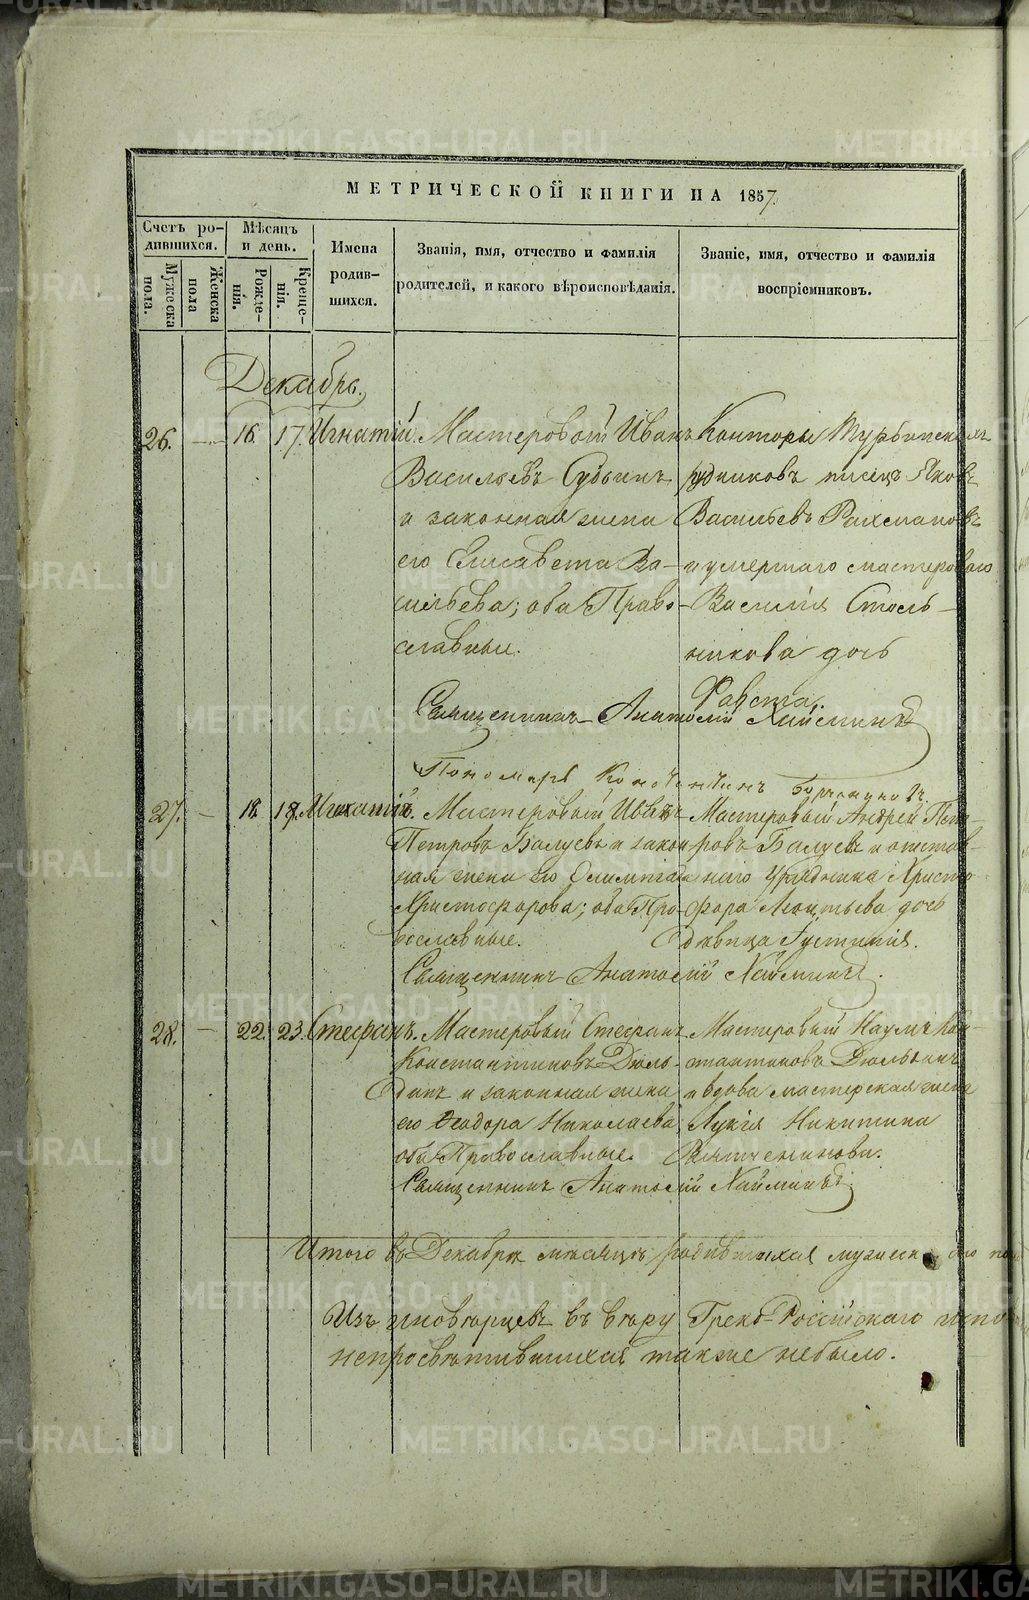 МЕТРИЧЕСКОЙ КНИГИ НА 1857.
Счетъ ро-
дившихся.
Мѣсяцъ
и день.
Мужеска
пола.
Женска
пола
Рожде-
нія.
Креще-
нія.
Имена
родив-
шихся.
Званія, имя, отчество и фамилія
родителей, и какого вѣроисповѣданія.
Званіе, имя, отчество и фамилія
воспріемниковъ.
Декабрь.
26. — 16 17. Игнатій. Мастеровой Иванъ
Васильевъ Субинъ
и законная жена
его Елисавета Ва-
сильева; оба Право-
славные.
Конторы Турьинскихъ
рудниковъ писецъ Яковъ
Васильевъ Рахмановъ
и умершаго мастероваго
Василія Столь-
никова дочь
Фавста.
Священникъ Анатолій Хайминъ
Пономарь
27. — 18. 18. Игнатій. Мастеровый Иванъ
Петровъ Балуевъ и закон-
ная жена его Олимпіада
Христофорова; оба Пра-
вославные.
Мастеровый Андрей Пет-
ровъ Балуевъ и отстав-
наго Урядника Христо-
фора Леонтьева дочь
дѣвица Густинія.
Священникъ Анатолій Хайминъ.
28. — 22. 23. Стефанъ. Мастеровый Стефанъ
Константиновъ Дюль-
динъ и законная жена
его Ѳеодора Николаева;
оба Православные.
Мастеровый Наумъ Кон-
стантиновъ Дюльдинъ
и вдова мастерская жена
Лукія Никитина
Священникъ Анатолій Хайминъ
Итого въ Декабрѣ мѣсяцѣ родившихся мужеска
Изъ иновѣрцевъ въ вѣру Греко-Россійскаго
непросвѣтившихся также небыло.
METRIKI.GASO-URAL.RU